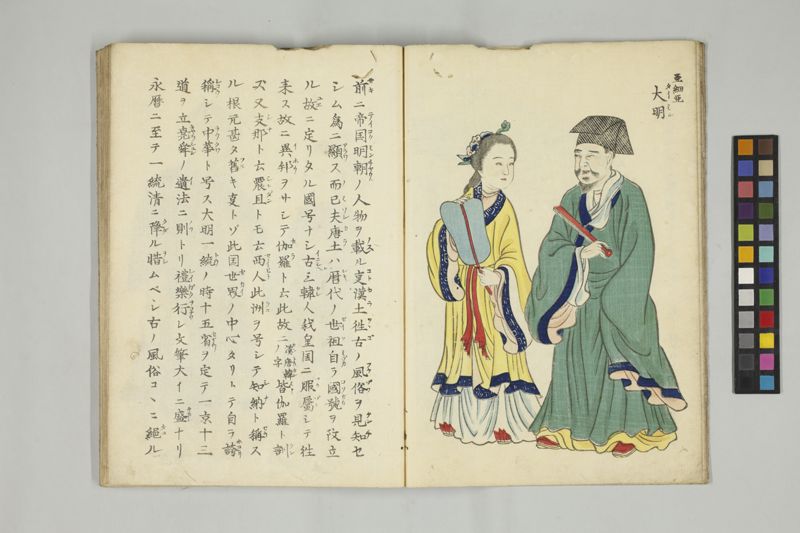 亜細亜
大明
前ニ帝国明朝ノ人物ヲ載ル支漢土徃古ノ風俗ヲ見知セ
シム為ニ顕ス而已夫唐土ハ暦代ノ世祖自ラ國號ヲ改立
ル故ニ定リタル國号ナシ古三韓人我皇国ニ服属シテ徃
来ス故ニ異邦ヲサシテ伽羅ト云此故ニ漢唐韓ノ字皆伽羅ト訓
ス又支那ト云震旦トモ云西人此洲ヲ号シテ知納ト稱ス
ル根元甚タ舊キ支トゾ此国世界ノ中心タリトテ自ラ誇
稱シテ中華ト号ス大明一統ノ時十五省ヲ定テ一京十三
道ヲ立堯舜ノ遺法ニ則トリ禮樂行レ文筆大イニ盛ナリ
永暦ニ至テ一統清ニ降ル惜ムベシ古ノ風俗コヽニ絶ル